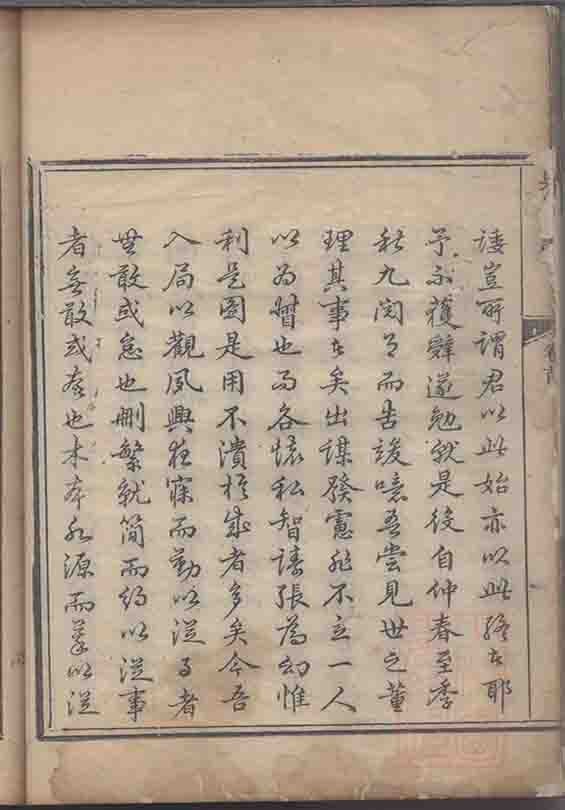 諉豈所謂君以此始亦以此終者耶
予不獲辭遂勉就是役自仲春至季
秋九閱月而告竣噫吾嘗見世之董
理其事者矣出謀發慮非不立一人
以為督也而各懷私智譸張為幻惟
利是圖是用不潰於成者多矣今吾
入局以觀夙興夜寐而勤以從事者
無敢或怠也刪繁就簡而約以從事
者無敢或奢也木本水源而以從
卷首